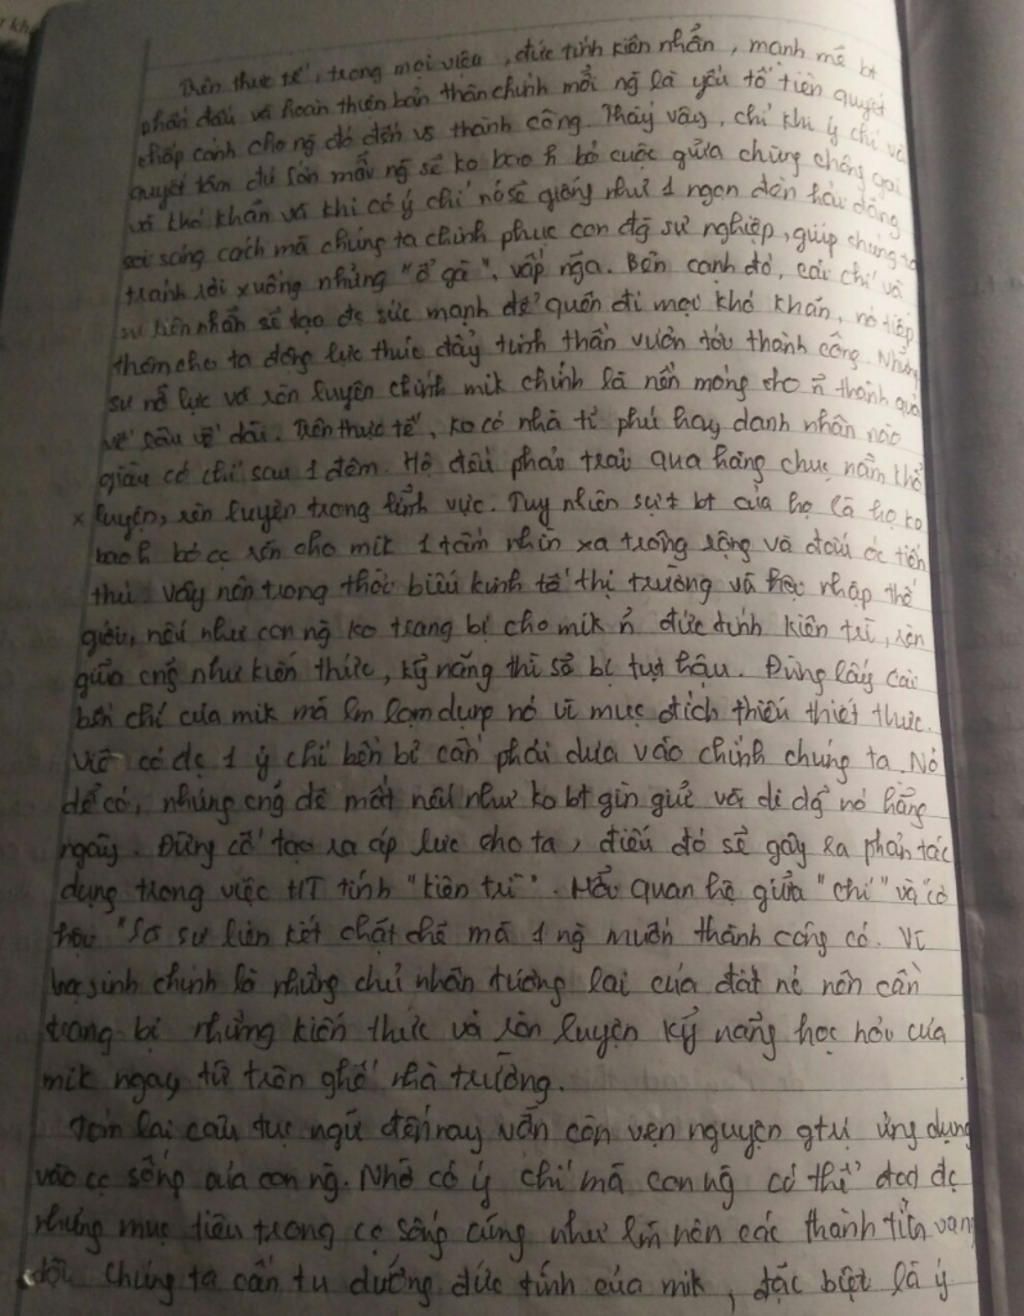 Trên thực tế, trong mọi việc, đức tính kiên nhẫn, mạnh mẽ bt
phấn đấu và hoàn thiện bản thân chính mỗi ng là yếu tố tiên quyết
chắp cánh cho ng đó đến vs thành công. Thấy vậy, chỉ khi ý chí và
quyết tâm đủ lớn mỗi ng sẽ ko bao h bỏ cuộc giữa chừng chông gai
và khó khăn và khi có ý chí nó sẽ giống như 1 ngọn đèn hải đăng
soi sáng cách mà chúng ta chinh phục con đg sự nghiệp, giúp chúng ta
tránh rời xuống những "ổ gà", vấp ngã. Bên cạnh đó, cái chí và
sự kiên nhẫn sẽ tạo đc sức mạnh để quên đi mọi khó khăn, nó tiếp
thêm cho ta động lực thúc đẩy tinh thần vươn tới thành công. Những
sự nỗ lực và rèn luyện chính mik chính là nền móng cho n~ thành quả
về sâu về dài. Trên thực tế, ko có nhà tỉ phú hay danh nhân nào
giàu có chỉ sau 1 đêm. Họ đều phải trải qua hàng chục năm khổ
x luyện, rèn luyện trong lĩnh vực. Tuy nhiên sự # bt của họ là họ ko
bao h bỏ cc rèn cho mik 1 tầm nhìn xa trông rộng và đầu óc tiến
thủ. Vậy nên trong thời buổi kinh tế thị trường và hội nhập thế
giới, nếu như con ng ko trang bị cho mik n~ đức tính kiên trì, rèn
giũa cng như kiến thức, kỹ năng thì sẽ bị tụt hậu. Đừng lấy cái
bền chí của mik mà lm lạm dụng nó vì mục đích thiếu thiết thực.
Việc có đc 1 ý chí bền bỉ cần phải dựa vào chính chúng ta. Nó
dễ có, nhưng cng dễ mất nếu như ko bt gìn giữ và di dg nó hằng
ngày. Đừng cố tạo ra áp lực cho ta, điều đó sẽ gây ra phản tác
dụng trong việc HT tính "kiên trì". Mối quan hệ giữa "chí" và "cơ
hội" là sự liên kết chặt chẽ mà 1 ng muốn thành công có. Vì
học sinh chính là những chủ nhân tương lai của đất nc nên cần
trang bị những kiến thức và rèn luyện kỹ năng học hỏi của
mik ngay từ trên ghế nhà trường.
Tóm lại câu tục ngữ đến nay vẫn còn vẹn nguyên gtrị ứng dụng
vào cc sống của con ng. Nhờ có ý chí mà con ng có thể đạt đc
những mục tiêu trong cc sống cũng như lm nên các thành tiền vang
dội. Chúng ta cần tu dưỡng đức tính của mik, đặc biệt là ý